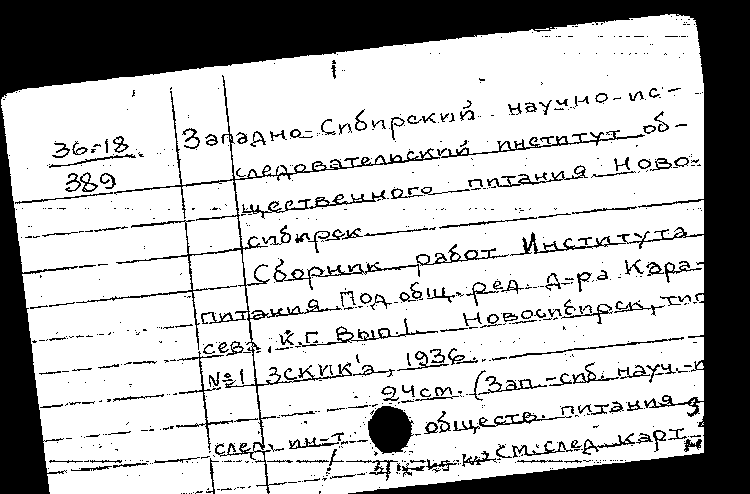 36-18
389
Западно-Сибирский научно-ис-
следовательский институт об-
щественного питания. Ново-
сибирск.
Сборник работ Института
питания. Под общ. ред. д-ра Кара-
сева, К.Г. Вып. I. Новосибирск, тип
№1 ЗСКИК'а, 1936.
24см. (Зап.-сиб. науч.-и
след. ин-т обществ. питания
см. след. карт.